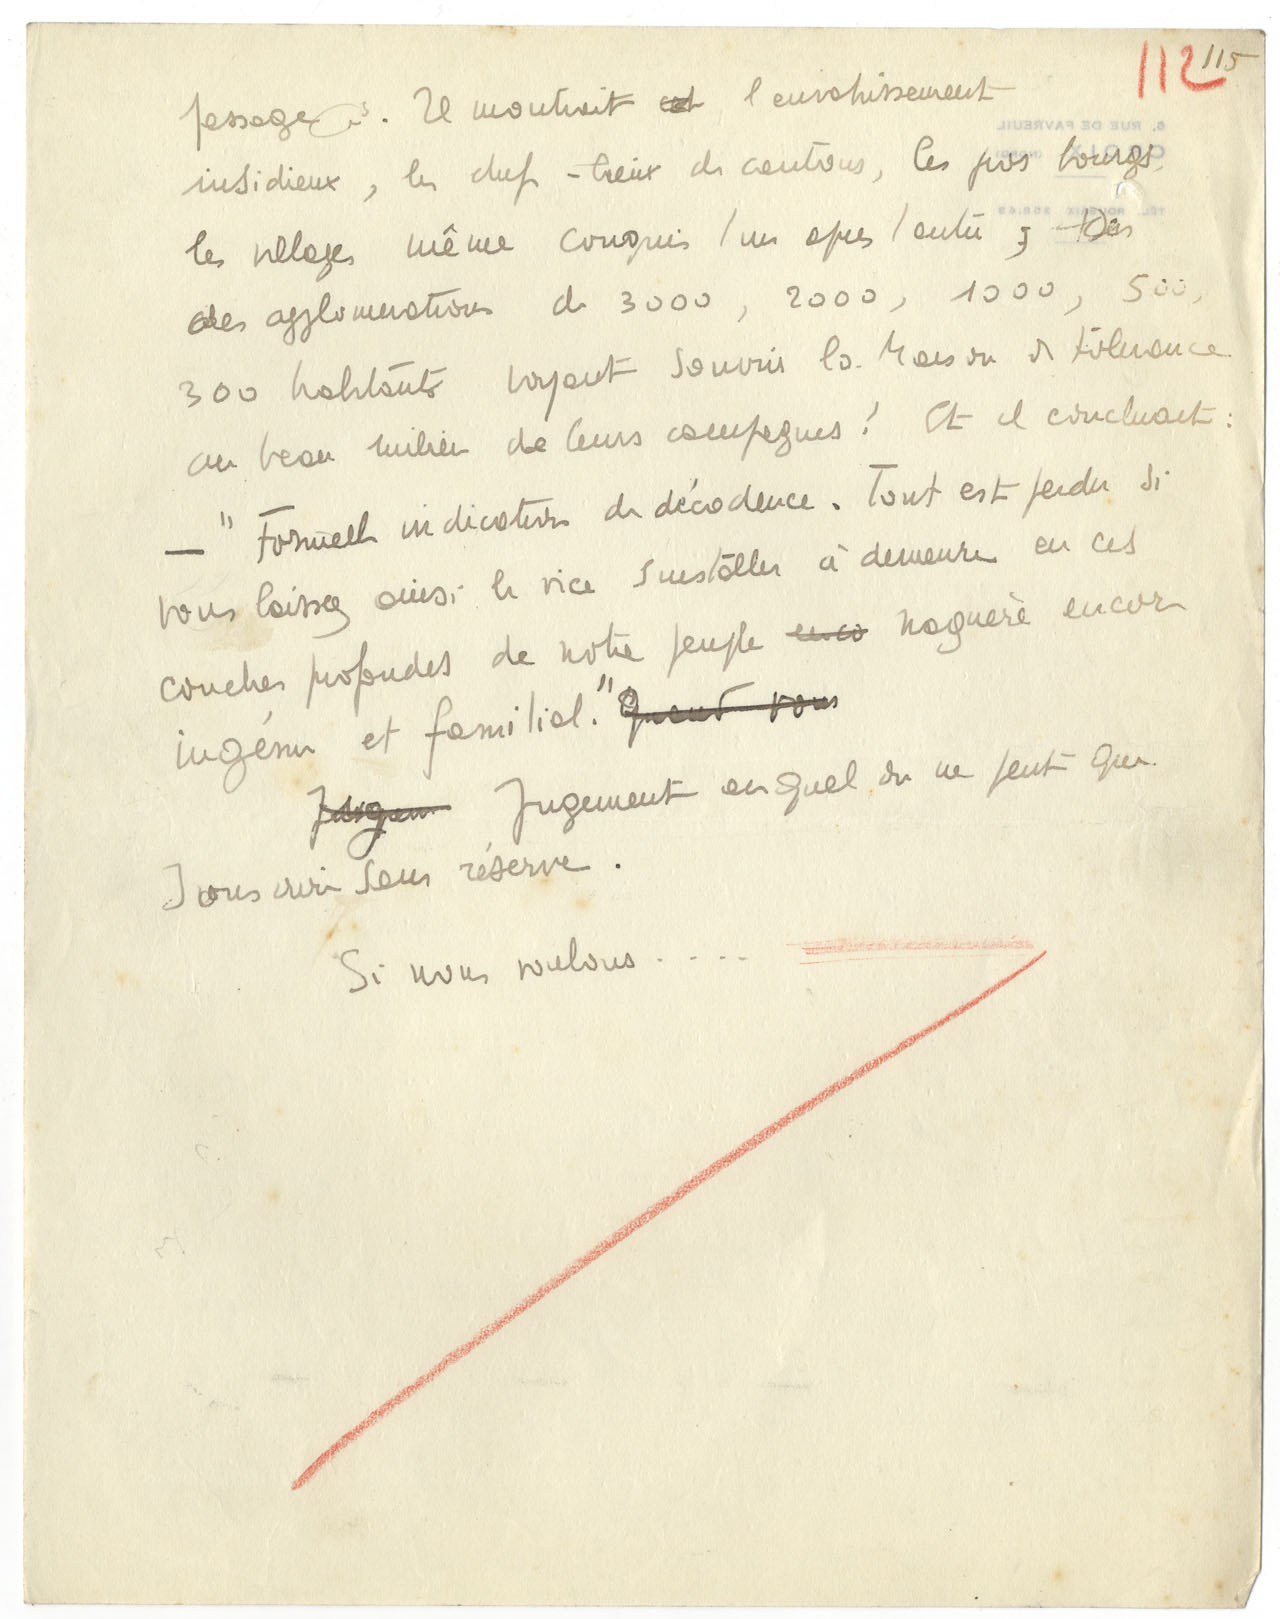 112 115
passagers. Il montrait et l'envahissement
insidieux, les chefs-lieux de cantons, les gros bourgs,
les villages même conquis l'un après l'autre ; Des
des agglomérations de 3000, 2000, 1000, 500,
300 habitants voyant s'ouvrir la Maison de tolérance
au beau milieu de leurs campagnes ! Et il concluait :
— " Formelle indication de décadence. Tout est perdu si
vous laissez ainsi le vice s'installer à demeure en ces
couches profondes de notre peuple enco naguère encore
ingénu et familial." Quant vous
Jugem Jugement auquel on ne peut que
souscrire sans réserve.
Si nous voulons . . . .
6, RUE DE FAVREUIL
CROIX (NORD)
TÉL. ROUBAIX